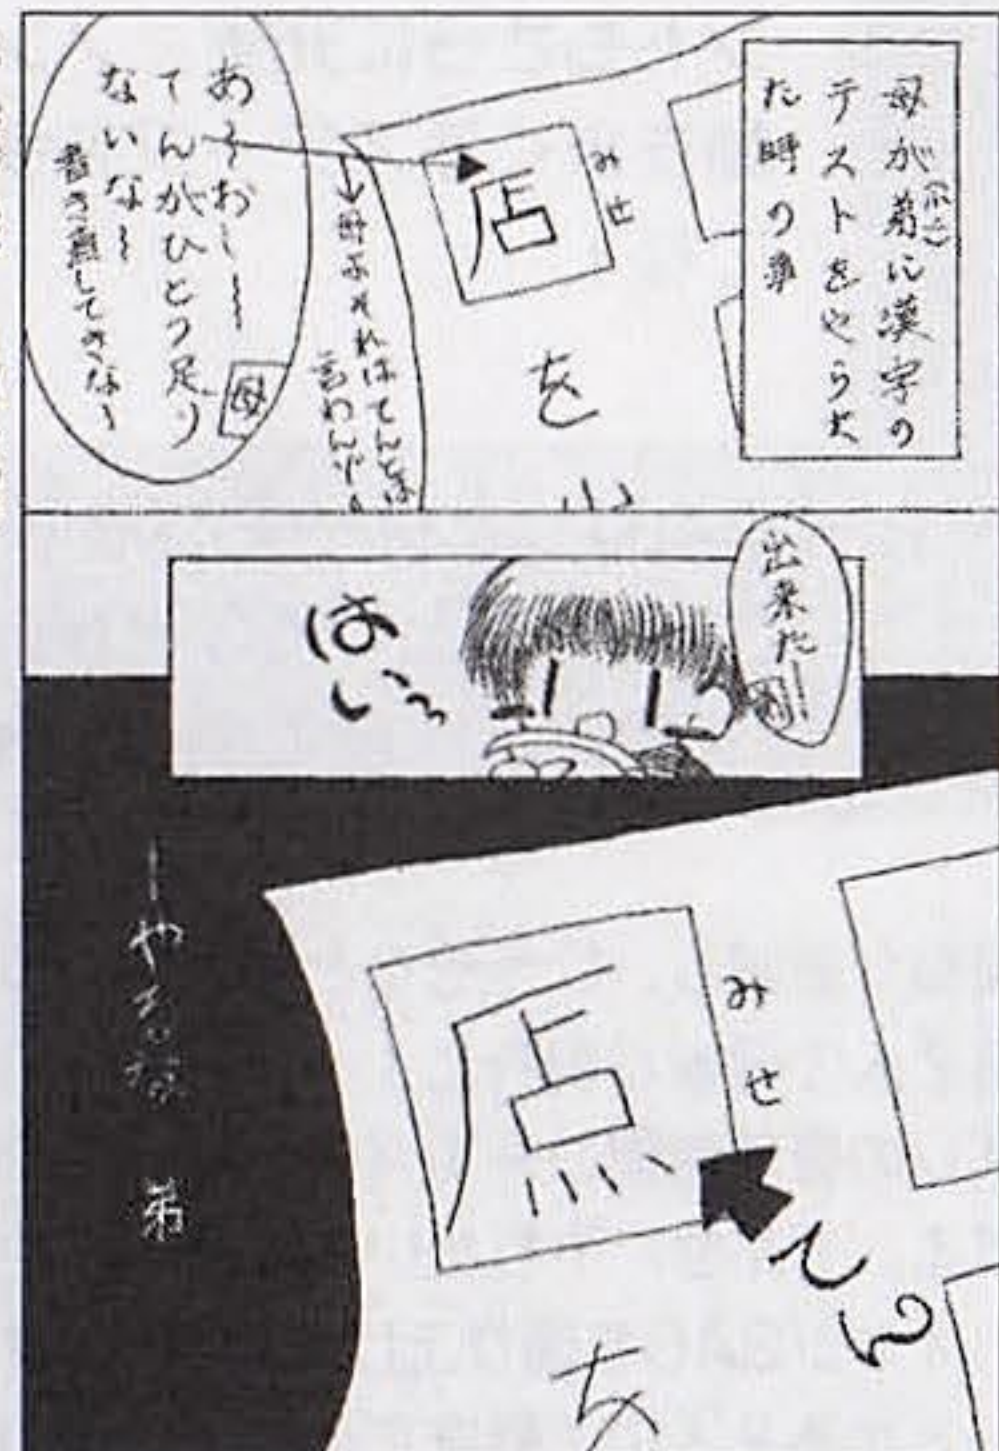 母が弟(小二)に漢字の
テストをやらせ
た時の事
みせ
店
を
あーおー
てんがひとつ足り
ないなー
書き直してきなー
母
母よそれはてんとは
言わんぞ
出来たー
母
はいっ
みせ
点
てん
を
ーやるな 弟